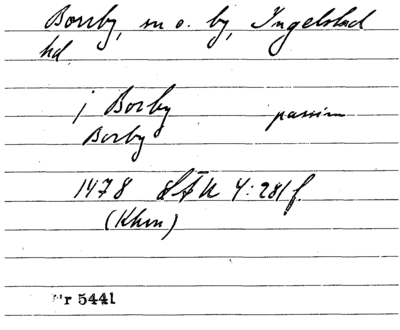 Borrby, sn o. by, Ingelstad
hd
j Borby passim
Borby
1478 LÄU 4:281f.
(Khvn)
Nr 5441